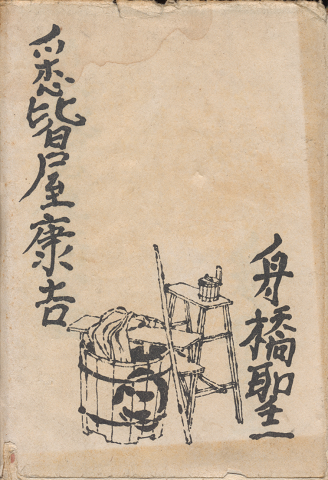 悉皆屋康吉
舟橋聖一